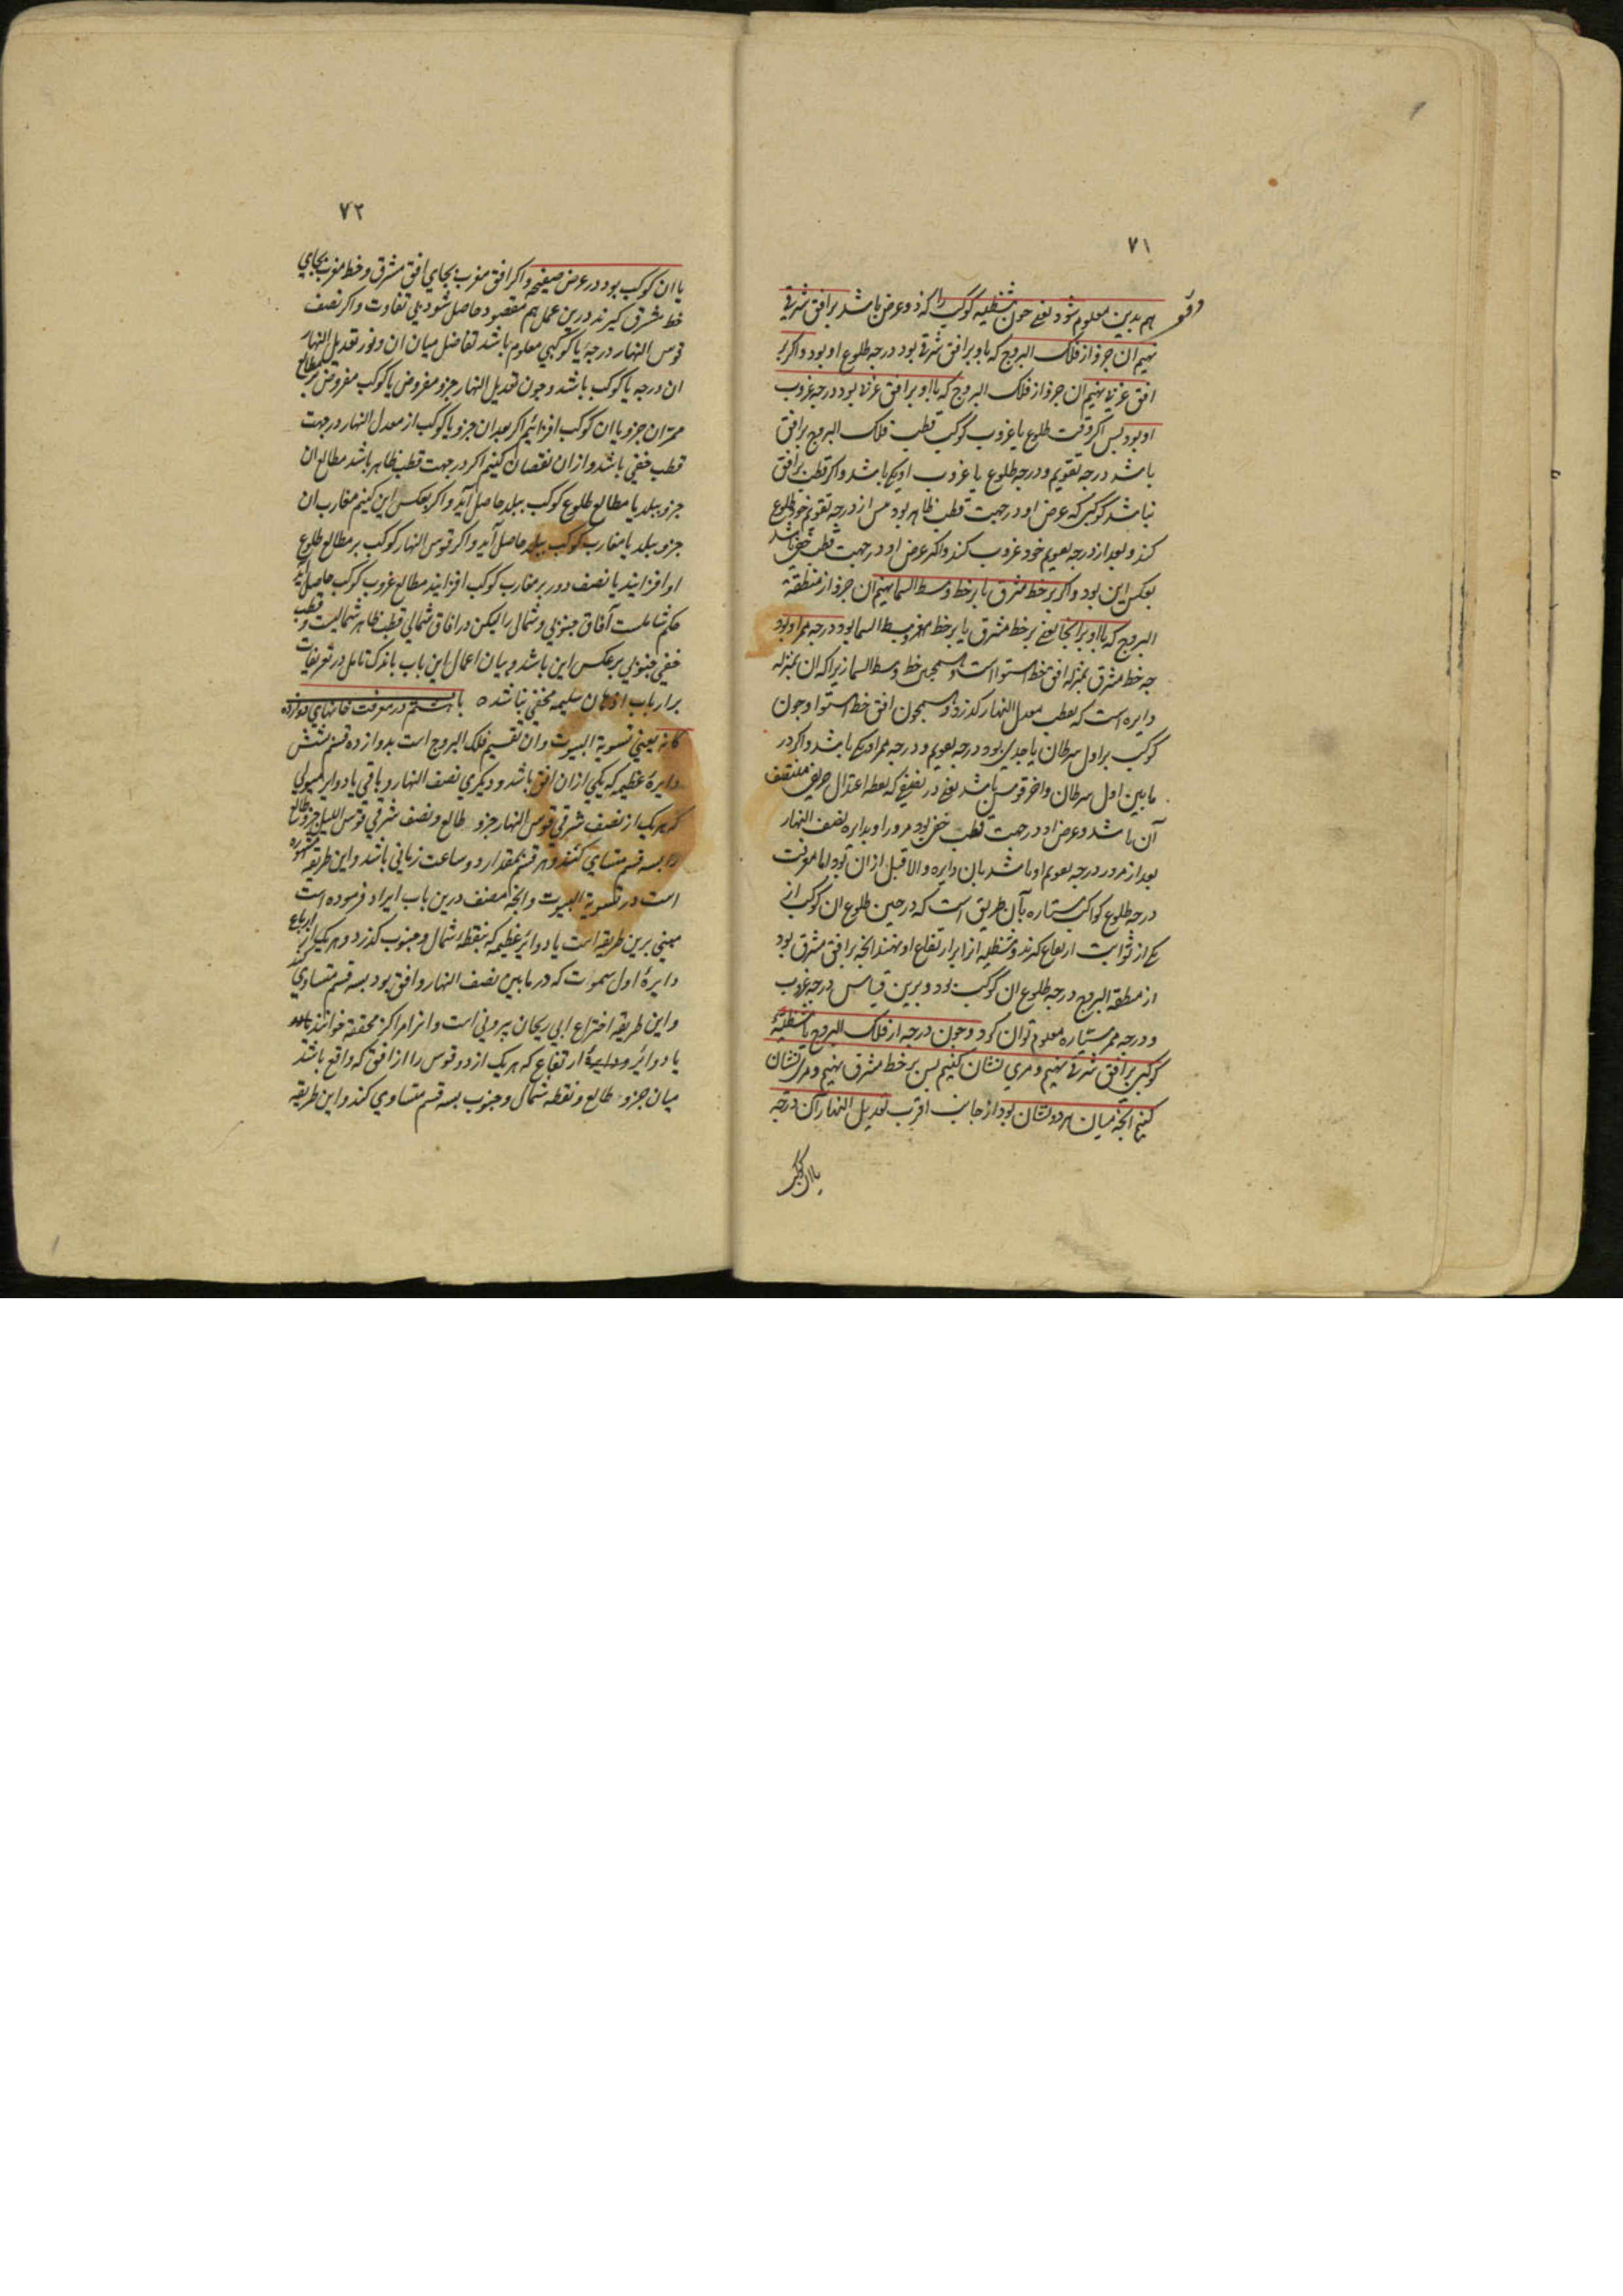 ۷۱
هم بدین معلوم شود یعنی چون شظیه کوکب را که ذو عرض باشد بر افق شرقی
نهیم ان جزو از فلک البروج که با او بر افق شرقی بود درجه طلوع او بود و اکر بر
افق غربی نهیم ان جزو از فلک البروج که با او بر افق غربی بود درجه غروب
او بود پس اکر وقت طلوع یا غروب کوکب قطب فلک البروج بر افق
باشد درجه تقویم و درجه طلوع یا غروب او یکی باشد و اکر قطب بر افق
نباشد کوکبی که عرض او در جهت قطب ظاهر بود پس از درجه تقویم خود طلوع
کند و بعد از درجه تقویم خود غروب کند و اکر عرض او در جهت قطب خفی باشد
بعکس این بود و اکر بر خط مشرق یا بر خط وسط السما نهیم ان جزو از منطقة
البروج که با او بر انجا یعنی بر خط مشرق یا بر خط وسط السما بود درجه ممر او بود
چه خط مشرق بمنزله افق خط استوا است و همچنین خط وسط السما زیرا که ان بمنزله
دایره است که بقطب معدل النهار کذرد و همچون افق خط استوا و چون
کوکب بر اول سرطان یا جدی بود درجه تقویم و درجه ممر او یکی باشد و اکر در
ما بین اول سرطان و اخر قوس باشد یعنی در نصفی که نقطه اعتدال خریفی منتصف
آن باشد و عرض او در جهت قطب خفی بود مرور او بدایره نصف النهار
بعد از مرور درجه تقویم او باشد بان دایره والا قبل از ان بود اما معرفت
درجه طلوع کواکب ستاره بآن طریق است که در حین طلوع ان کوکب از
یکی از ثوابت ارتفاع کیرند و شظیه انرا بر ارتفاع او نهند انچه بر افق مشرق بود
از منطقة البروج درجه طلوع ان کوکب بود و برین قیاس درجه غروب
و درجه ممر ستیاره معلوم توان کرد و چون درجه از فلک البروج یا شظیه
کوکبی بر افق شرقی نهیم و مری نشان کنیم پس بر خط مشرق نهیم و مری نشان
کنیم انچه میان هر دو نشان بود از جانب اقرب تعدیل النهار آن درجه
یا ان کوکب
۷۲
یا ان کوکب بود در عرض صفیحه و اکر افق مغرب بجای افق مشرق و خط مغرب بجای
خط مشرق کیرند درین عمل هم مقصود حاصل شود بلی تفاوت و اکر نصف
قوس النهار درجه یا کوکبی معلوم باشد تفاضل میان ان و نور تعدیل النهار
ان درجه یا کوکب باشد و چون تعدیل النهار جزو مفروض یا کوکب مفروض بر مطالع
ممر ان جزو یا ان کوکب افزائیم اکر بعد ان جزو یا کوکب از معدل النهار در جهت
قطب خفی باشد و از ان نقصان کنیم اکر در جهت قطب ظاهر باشد مطالع ان
جزو ببلد یا مطالع طلوع کوکب ببلد حاصل آید و اکر بعکس این کنیم مغارب ان
جزو ببلد یا مغارب کوکب ببلد حاصل آید و اکر قوس النهار کوکب بر مطالع طلوع
او افزایند یا نصف دور بر مغارب کوکب افزایند مطالع غروب کوکب حاصل آید
حکم شاملست آفاق جنوبی و شمالی را لیکن در افاق شمالی قطب ظاهر شمالیست و قطب
خفی جنوبی برعکس این باشد و بیان اعمال این باب باندک تامل در تعریفات
بر ارباب اذهان سلیمه مخفی نباشد ه باب هشتم در معرفت خانهای دوازده
کانه یعنی تسویة البیوت و ان تقسیم فلک البروج است بدوازده قسم بشش
دایرهٔ عظیمه که یکی ازان افق باشد و دیکری نصف النهار و باقی یا دوایر میولی
که هر یک از نصف شرقی قوس النهار جزو طالع و نصف شرقی قوس اللیل جزو طالع
را بسه قسم متساوی کنند و هر قسم بمقدار دو ساعت زمانی باشد و این طریقه مشهوره
است در تسویة البیوت و انچه مصنف درین باب ایراد فرموده است
مبنی برین طریقه است یا دوائر عظیمه که بنقطه شمال و جنوب کذرد و هر یک از ارباع
دایرهٔ اول سموت که در ما بین نصف النهار و افق بود بسه قسم متساوی کند
و این طریقه اختراع ابی ریحان بیرونی است و انرا مراکز محققه خوانند
یا دوائر ارتفاع که هر یک از دو قوس را از افق که واقع باشد
میان جزو طالع و نقطه شمال و جنوب بسه قسم متساوی کند و این طریقه